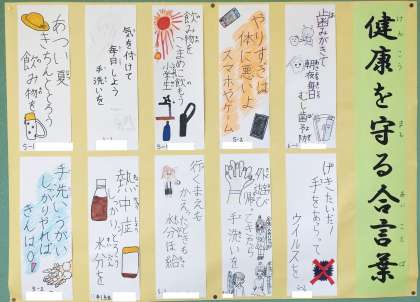 健康を守る合言葉
けんこう
まも
あいことば
歯みがきで
朝夜毎日
むし歯予防
やりすぎは
体に悪いよ
スマホやゲーム
飲み物を
こまめに飲もう
小学生
気を付けて
毎日しよう
手洗いを
5-1
あつい夏
きちんととろう
飲み物を
5-1
げきたいだ!
手をあらって
ウイルスを
外遊び
帰ってきたら
手洗いを
行くまえも
かえるときも
水分ほ給
熱中症
しっかりとろう
水分を
手洗いうがい
しっかりやれば
きんは0!
5-2